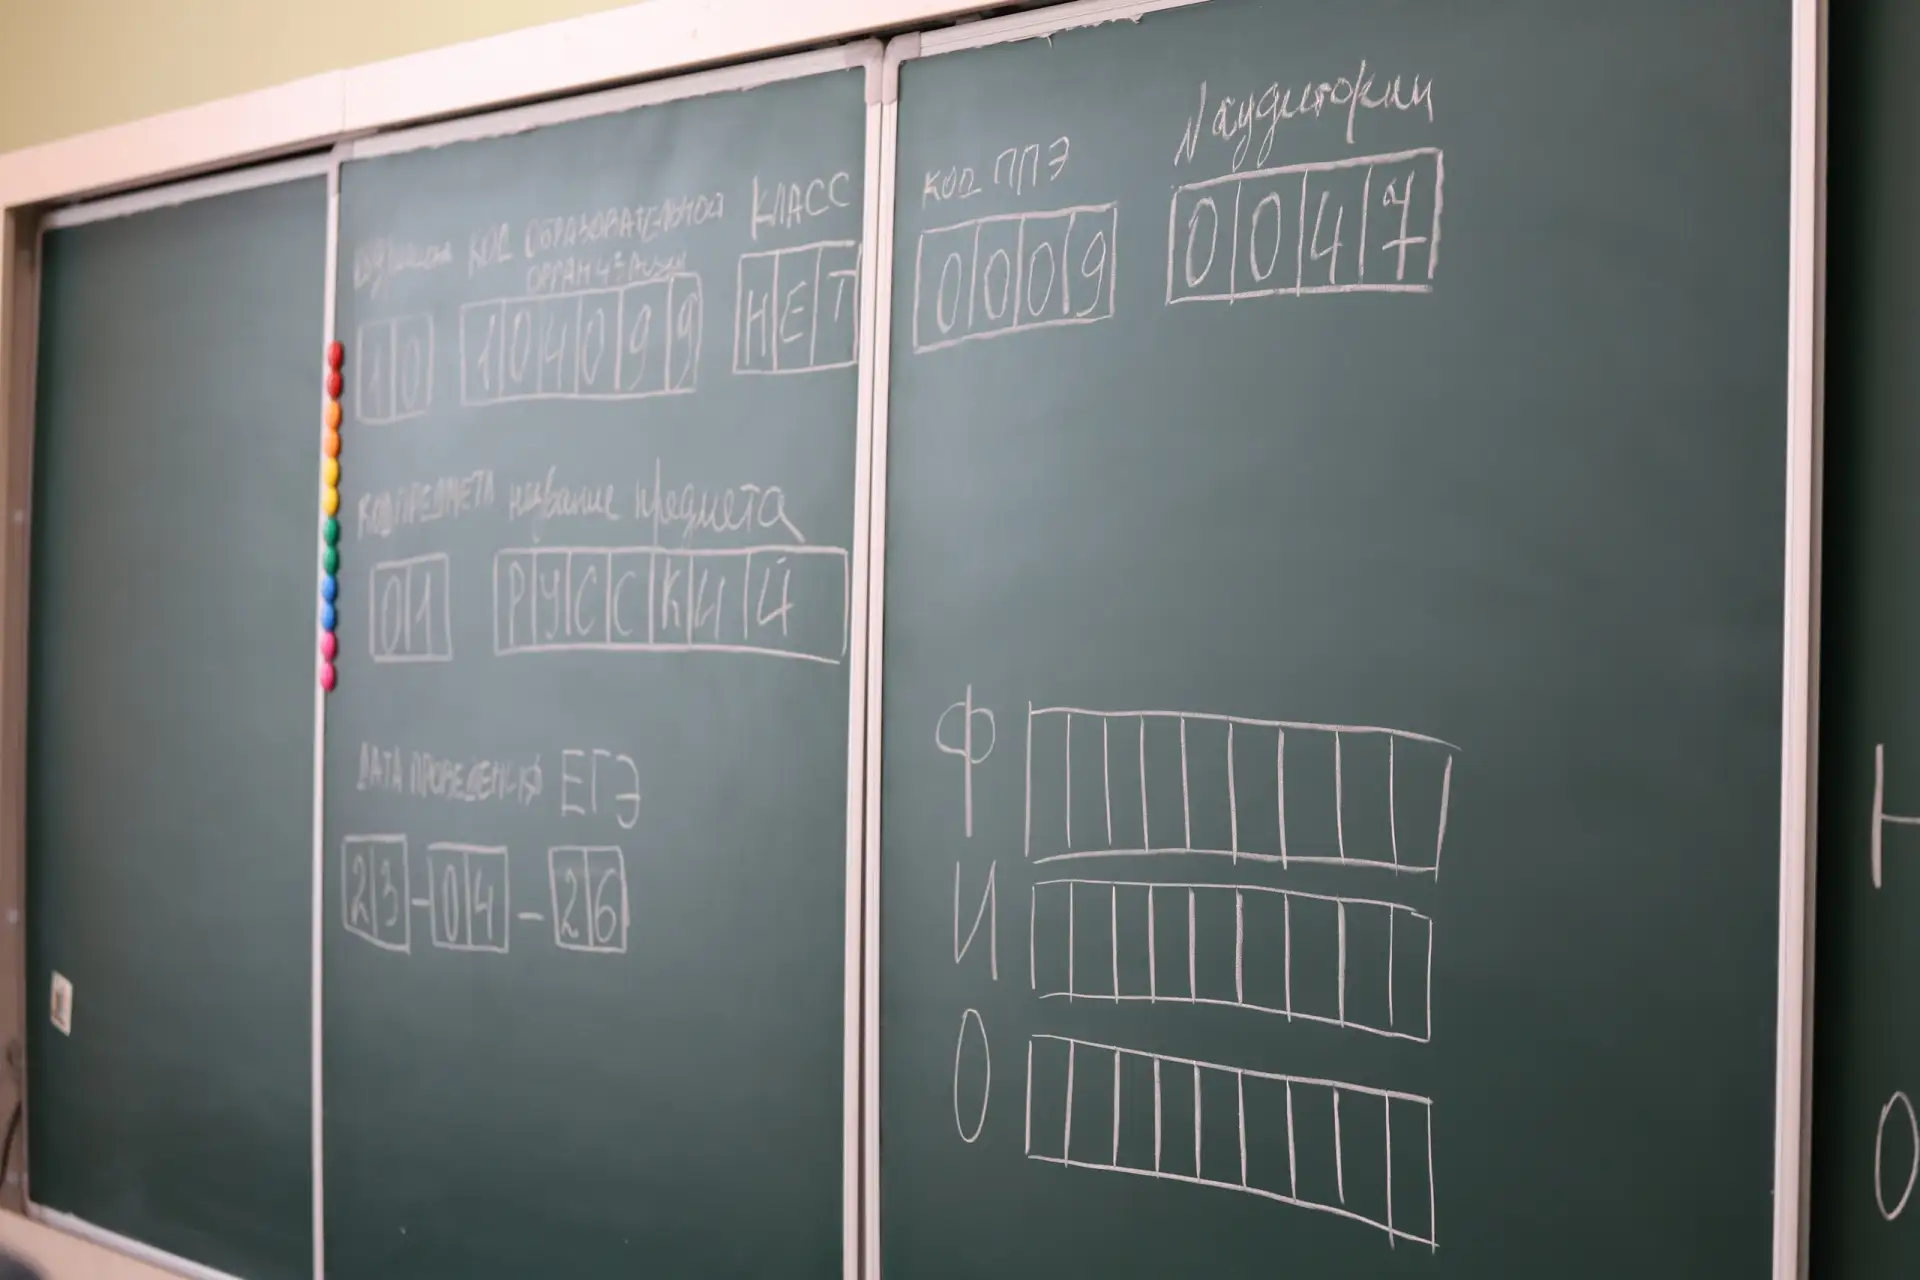 КОД ОБРАЗОВАТЕЛЬНОЙ КЛАСС
ОРГАНИЗАЦИИ
10 104099 НЕТ
КОД ПРЕДМЕТА название предмета
01 РУССКИЙ
ДАТА ПРОВЕДЕНИЯ ЕГЭ
23-04-26
КОД ППЭ N аудитории
0009 0047
Ф
И
О